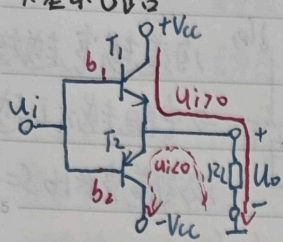 +Vcc
T₁
b₁
ui>0
ui
T₂
+
ui<0
RL
Uo
b₂
-
-Vcc